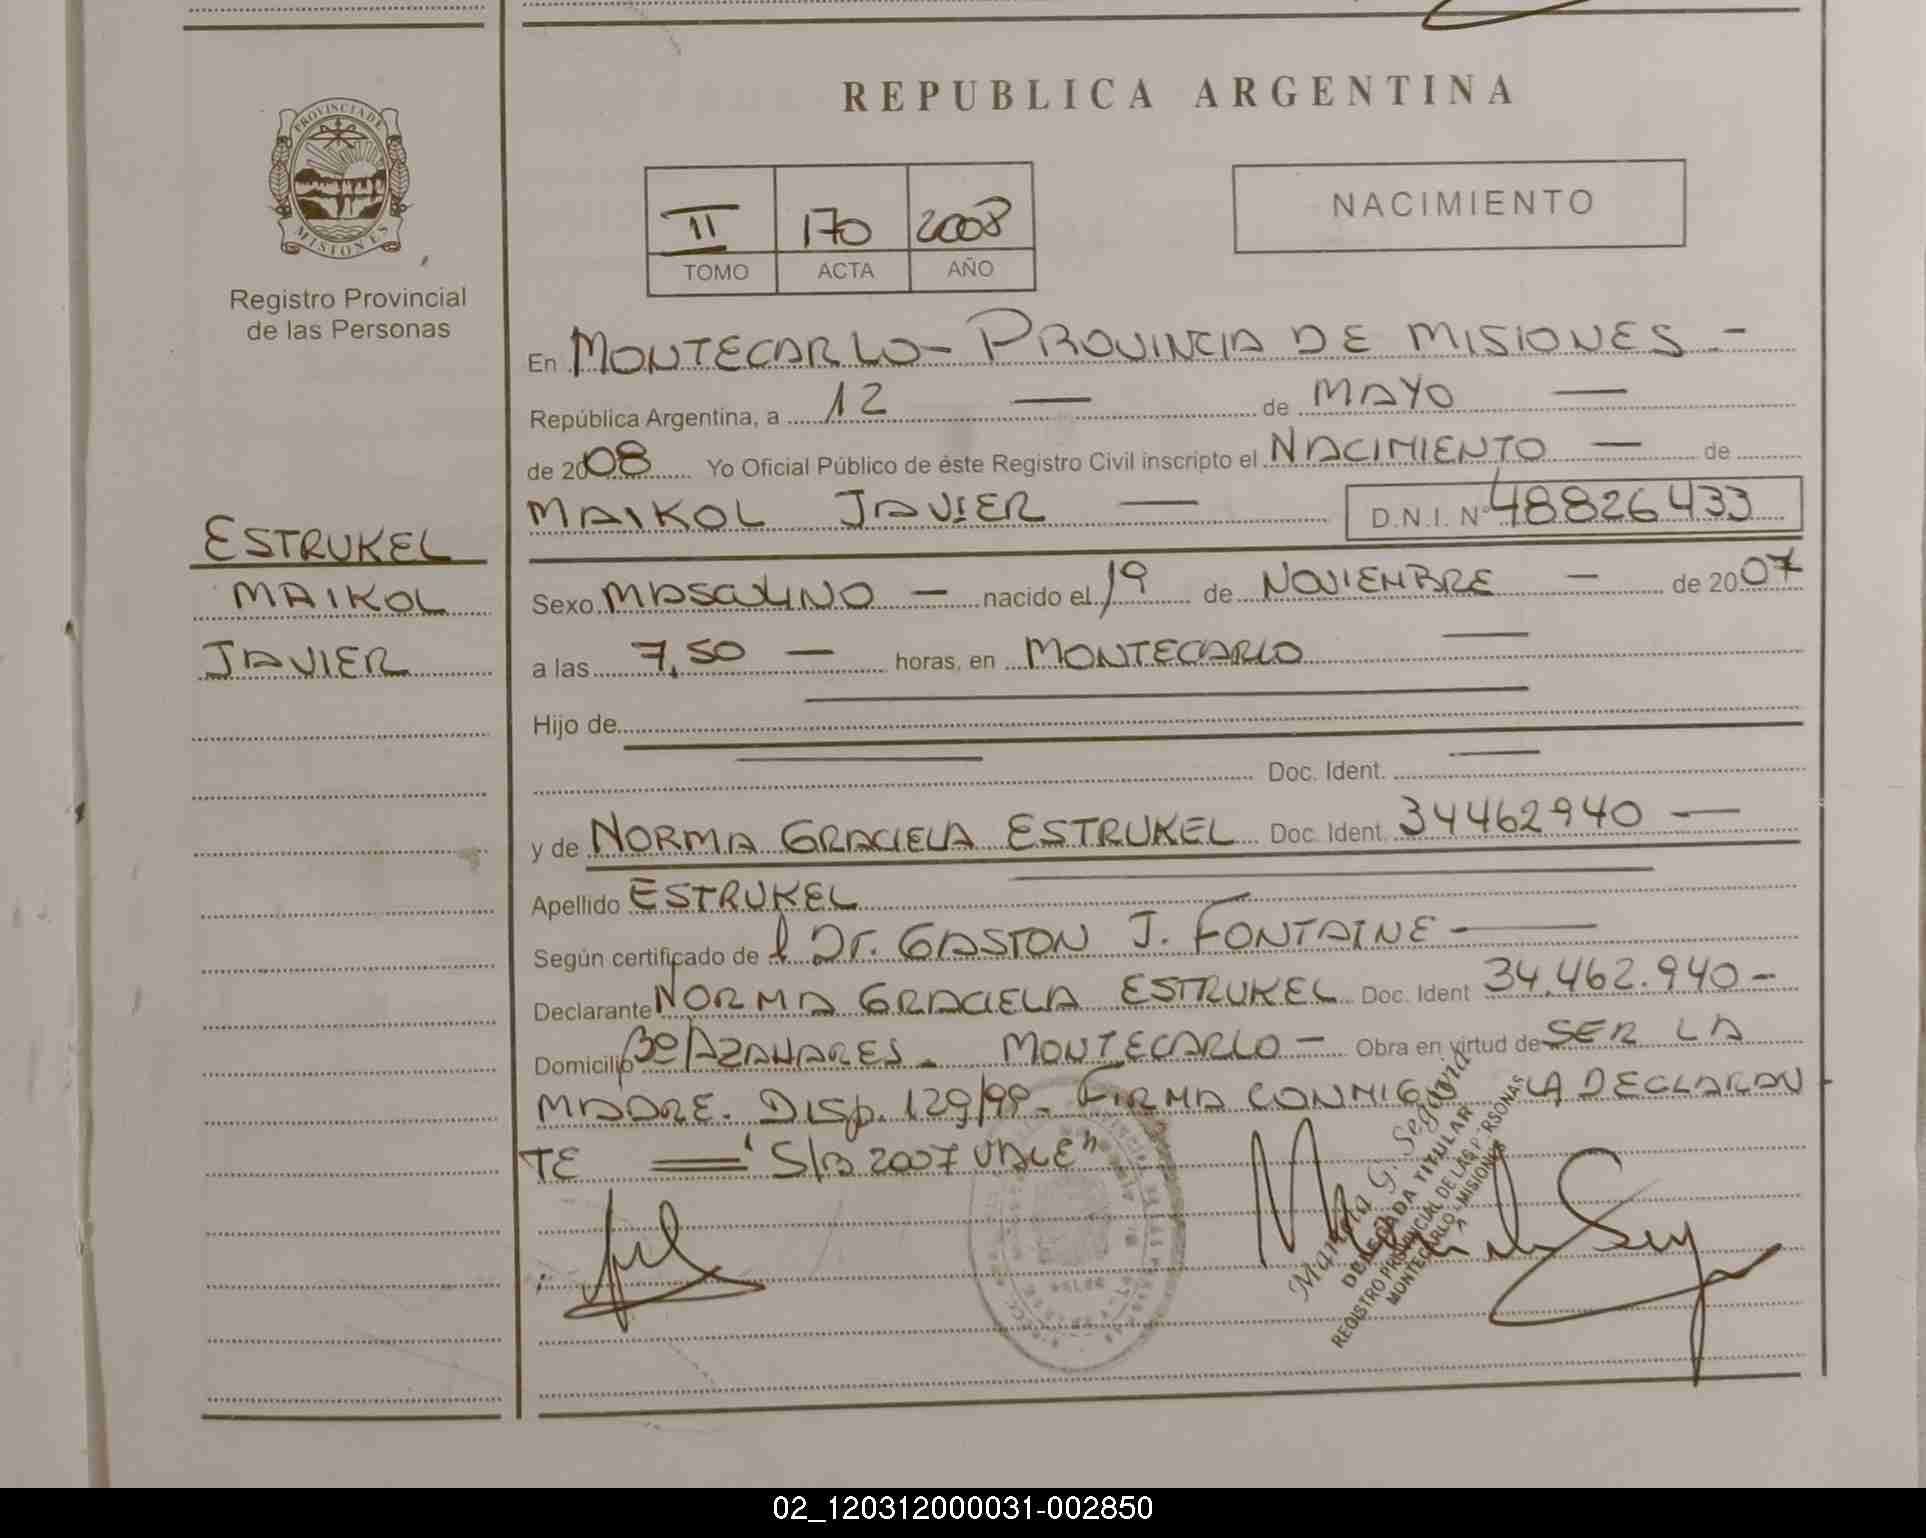 REPUBLICA ARGENTINA
PROVINCIA DE
MISIONES
Registro Provincial
de las Personas
II 170 2008
TOMO ACTA AÑO
NACIMIENTO
En MONTECARLO- PROVINCIA DE MISIONES -
República Argentina, a 12 — de MAYO —
de 2008 Yo Oficial Público de éste Registro Civil inscripto el NACIMIENTO — de
MAIKOL JAVIER — D.N.I. Nº 48826433
ESTRUKEL
MAIKOL
JAVIER
Sexo MASCULINO — nacido el 19 de NOVIEMBRE — de 2007
a las 7,50 — horas, en MONTECARLO —
Hijo de
Doc. Ident. —
y de NORMA GRACIELA ESTRUKEL Doc. Ident. 34462940 —
Apellido ESTRUKEL
Según certificado de l Dr. GASTON J. FONTAINE —
Declarante NORMA GRACIELA ESTRUKEL Doc. Ident 34.462.940-
Domicilio Bº AZAHARES - MONTECARLO - Obra en virtud de SER LA
MADRE. Disp. 129/99- FIRMA CONMIGO LA DECLARAN-
TE = "S/B 2007 VALE"
Mariela G. Segovia
DELEGADA TITULAR
REGISTRO PROVINCIAL DE LAS PERSONAS
MONTECARLO - MISIONES
02_120312000031-002850